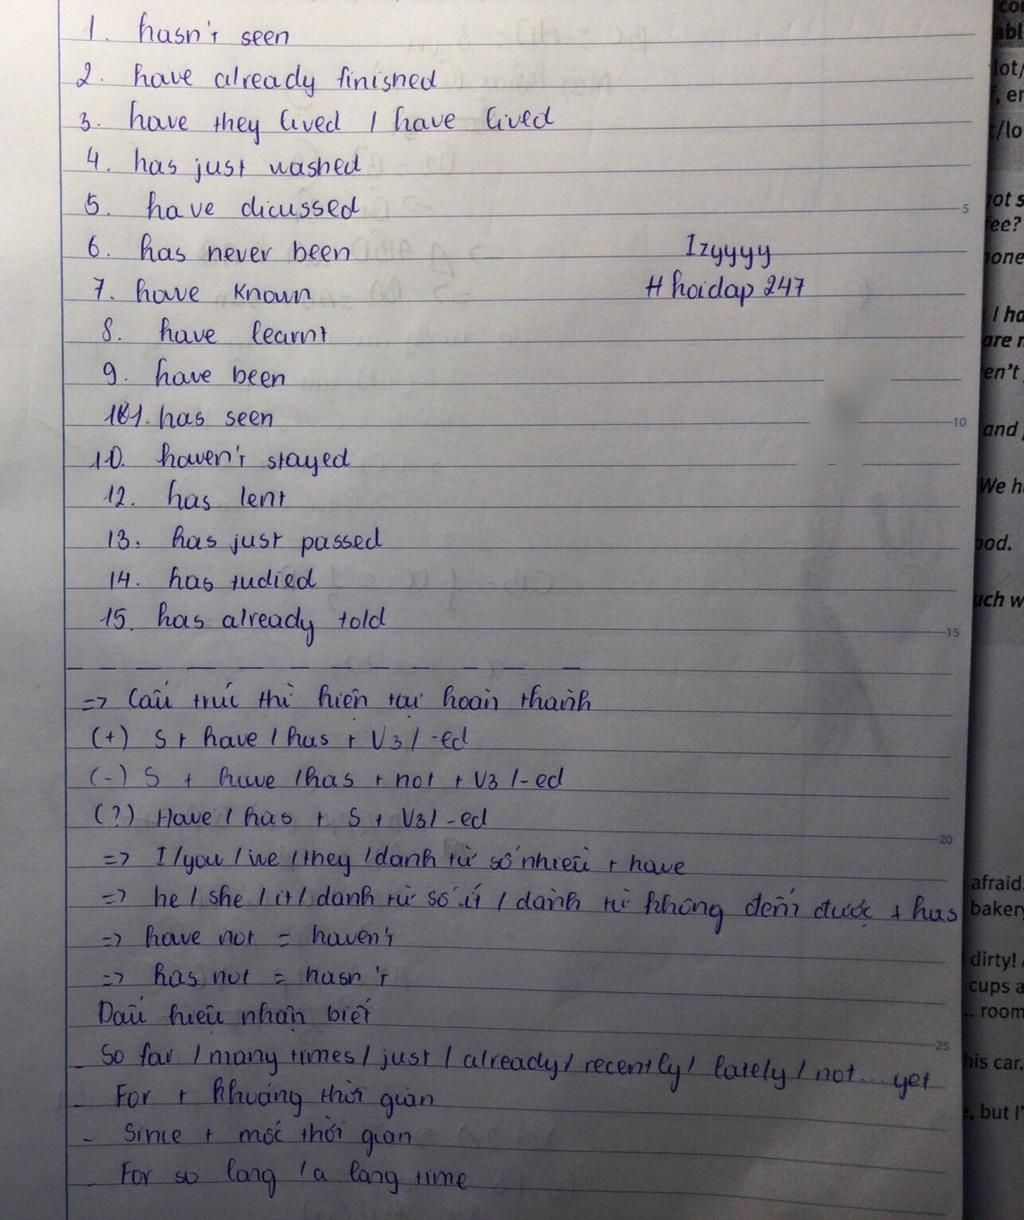 1. hasn't seen
2. have already finished
3. have they lived / have lived
4. has just washed
5. have dicussed
6. has never been
Izyyyy
7. have known
# hoidap 247
8. have learnt
9. have been
11. has seen
10. haven't stayed
12. has lent
13. has just passed
14. has tudied
15. has already told
=> Cấu trúc thì hiện tại hoàn thành
(+) S + have / has + V3 / -ed
(-) S + have / has + not + V3 / -ed
(?) Have / has + S + V3 / -ed
=> I / you / we / they / danh từ số nhiều + have
=> he / she / it / danh từ số ít / danh từ không đếm được + has
=> have not = haven't
=> has not = hasn't
Dấu hiệu nhận biết
- So far / many times / just / already / recently / lately / not ... yet
- For + khoảng thời gian
- Since + mốc thời gian
- For so long / a long time
5
10
15
20
25
lot/
ee?
I ha
are n
en't
and
We h
ood.
uch w
afraid
baker
dirty!
cups a
.. room
his car.
, but I'